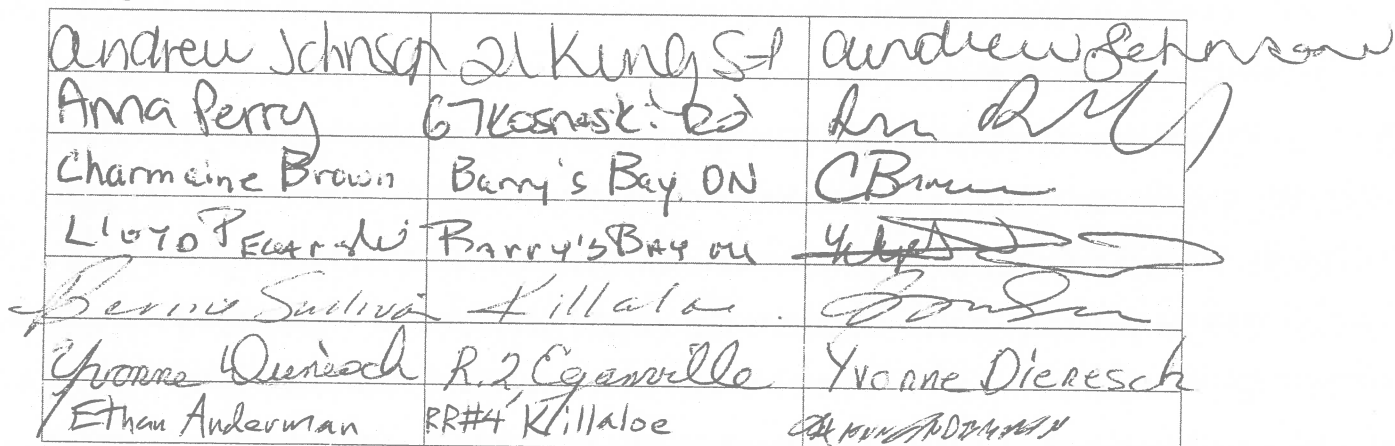 Andrew Johnson 21 King St Andrew Johnson
Anna Perry 67 Kosnaski Rd
Charmaine Brown Barry's Bay ON CBrown
Lloyd Barry's Bay ON
Bernie Sullivan Killaloe
Yvonne Dieresch R.2 Eganville Yvonne Dieresch
Ethan Anderman RR#4 Killaloe